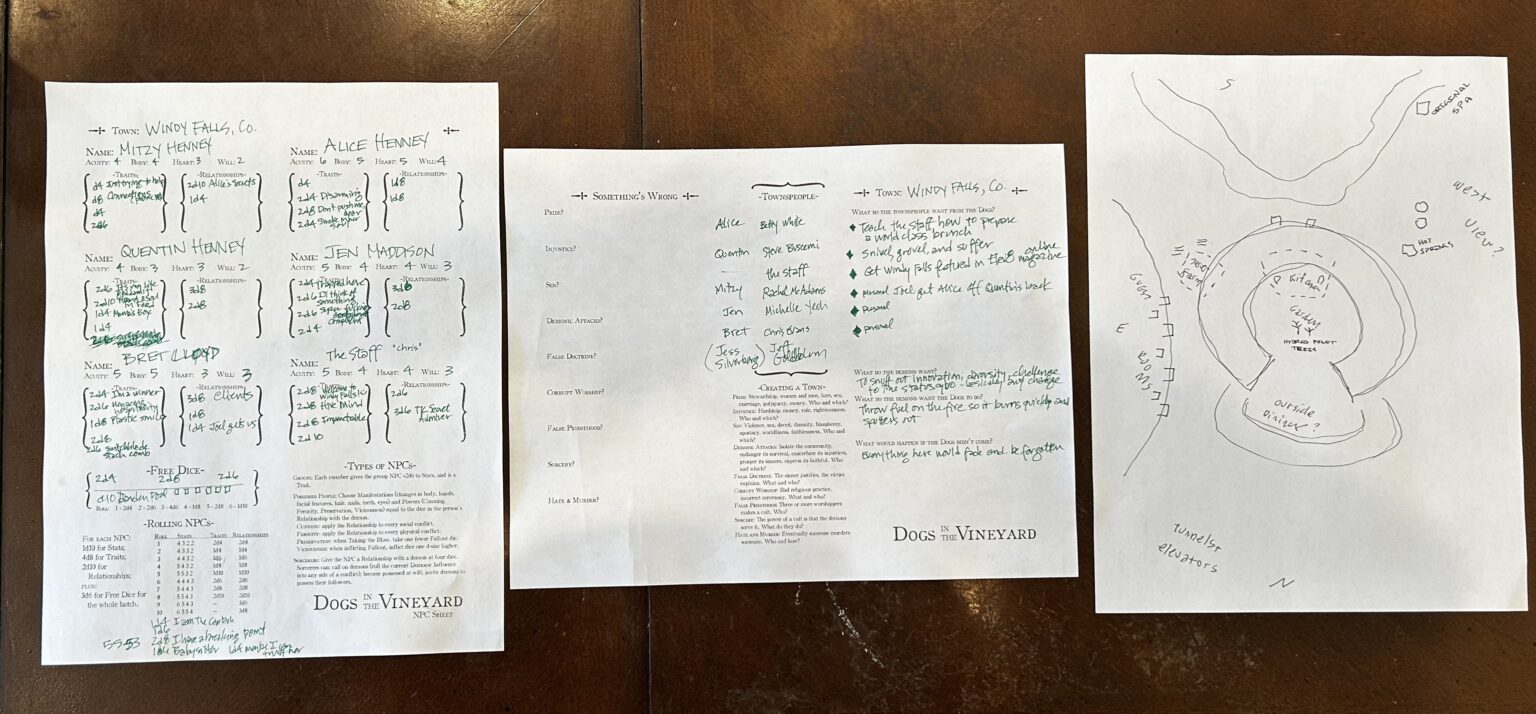 TOWN: WINDY FALLS, CO.
NAME: MITZY HENNEY
ACUITY: 4 BODY: 4 HEART: 3 WILL: 2
-TRAITS-
d4 Just trying to help
d8 Connections
d4
2d6
-RELATIONSHIPS-
2d10 Alice's Secrets
1d4
NAME: ALICE HENNEY
ACUITY: 6 BODY: 5 HEART: 5 WILL: 4
-TRAITS-
d4
2d4 Disarming
2d8 Don't push me dear
2d4
-RELATIONSHIPS-
1d8
1d8
NAME: QUENTIN HENNEY
ACUITY: 4 BODY: 3 HEART: 3 WILL: 2
-TRAITS-
2d6 It's my life
2d10
1d4 Mama's Boy
1d4
-RELATIONSHIPS-
3d8
2d8
NAME: JEN MADDISON
ACUITY: 5 BODY: 4 HEART: 4 WILL: 3
-TRAITS-
2d4 Trapped here
2d6 I'll think of something
2d6 Super
2d4
-RELATIONSHIPS-
3d6
2d8
NAME: BRET CLOYD
ACUITY: 5 BODY: 5 HEART: 3 WILL: 3
-TRAITS-
2d4 I'm a winner
2d6 Managing hospitality
1d8 Plastic smile
2d8
2d6 Switchblade comb
-RELATIONSHIPS-
3d8 clients
1d8
1d4 Joel gets us
NAME: The Staff "Chris"
ACUITY: 5 BODY: 4 HEART: 4 WILL: 3
-TRAITS-
2d8 Welcome to Windy Falls
2d8 Hive Mind
2d8 Impenetrable
2d10
-RELATIONSHIPS-
2d6
3d6 TK Secret Admirer
-FREE DICE-
2d4 2d8 2d6
d10
ROLL: 1 - 2d4 2 - 4d4 3 - 4d6 4 - 1d8 5 - 2d8 6 - 1d10
-ROLLING NPCS-
FOR EACH NPC:
1d10 for Stats;
4d8 for Traits;
2d10 for
Relationships;
PLUS:
3d6 for Free Dice for
the whole batch.
ROLL STATS TRAITS RELATIONSHIPS
1 4 3 2 2 2d4 2d4
2 4 3 3 2 1d4 1d4
3 4 4 3 2 1d6 1d6
4 5 4 3 2 1d8 1d8
5 5 5 3 2 1d10 1d10
6 4 4 4 3 2d6 2d6
7 5 4 4 3 2d8 2d8
8 5 5 4 3 2d10 2d10
9 6 5 4 3 – 3d6
10 6 5 5 4 – 3d8
-TYPES OF NPCS-
GROUPS: Each member gives the group NPC +2d6 to Stats, and is a
Trait.
POSSESSED PEOPLE: Choose Manifestations (changes in body, hands,
facial features, hair, nails, teeth, eyes) and Powers (Cunning,
Ferocity, Preservation, Viciousness) equal to the dice in the person's
Relationship with the demon.
CUNNING: apply the Relationship to every social conflict.
FEROCITY: apply the Relationship to every physical conflict.
PRESERVATION: when Taking the Blow, take one fewer Fallout die.
VICIOUSNESS: when inflicting Fallout, inflict dice one d-size higher.
SORCERERS: Give the NPC a Relationship with a demon at four dice.
Sorcerers can: call on demons (roll the current Demonic Influence
into any side of a conflict); become possessed at will; invite demons to
possess their followers.
DOGS IN THE VINEYARD
NPC SHEET
1d4 I am the Captain
1d6
2d8 I have a breaking point
1d6 Babysitter 1d4 maybe I can trust her
SOMETHING'S WRONG
PRIDE?
INJUSTICE?
SIN?
DEMONIC ATTACKS?
FALSE DOCTRINE?
CORRUPT WORSHIP?
FALSE PRIESTHOOD?
SORCERY?
HATE & MURDER?
-TOWNSPEOPLE-
Alice Betty White
Quentin Steve Buscemi
— the staff
Mitzy Rachel McAdams
Jen Michelle Yeoh
Bret Chris Evans
(Jess Silverberg) Jeff Goldblum
-CREATING A TOWN-
PRIDE: Stewardship, women and men, love, sex,
marriage, polygamy, money. Who and which?
INJUSTICE: Hardship: money, role, righteousness.
Who and which?
SIN: Violence, sex, deceit, disunity, blasphemy,
apostasy, worldliness, faithlessness. Who and
which?
DEMONIC ATTACKS: Isolate the community,
endanger its survival, exacerbate its injustices,
prosper its sinners, oppress its faithful. Who
and which?
FALSE DOCTRINE: The sinner justifies, the victim
explains. What and who?
CORRUPT WORSHIP: Bad religious practice,
incorrect ceremony. What and who?
FALSE PRIESTHOOD: Three or more worshippers
makes a cult. Who?
SORCERY: The power of a cult is that the demons
serve it. What do they do?
HATE AND MURDER: Eventually someone murders
someone. Who and how?
TOWN: WINDY FALLS, CO.
WHAT DO THE TOWNSPEOPLE WANT FROM THE DOGS?
Teach the staff how to prepare
a world class brunch
Snivel, grovel, and suffer
Get Windy Falls featured in Elev8 online magazine
personal Joel get Alice off Quentin's back
personal
personal
WHAT DO THE DEMONS WANT?
To snuff out innovation, diversity, challenge
to the status quo - basically, any change
WHAT DO THE DEMONS WANT THE DOGS TO DO?
Throw fuel on the fire so it burns quickly and
sputters out
WHAT WOULD HAPPEN IF THE DOGS DIDN'T COME?
Everything here would fade and be forgotten
DOGS IN THE VINEYARD
S
ORIGINAL SPA
West
View?
HOT SPRINGS
Kitchen
Garden
TREES
GUEST
ROOMS
E
outside
Dining?
tunnels
elevators
N